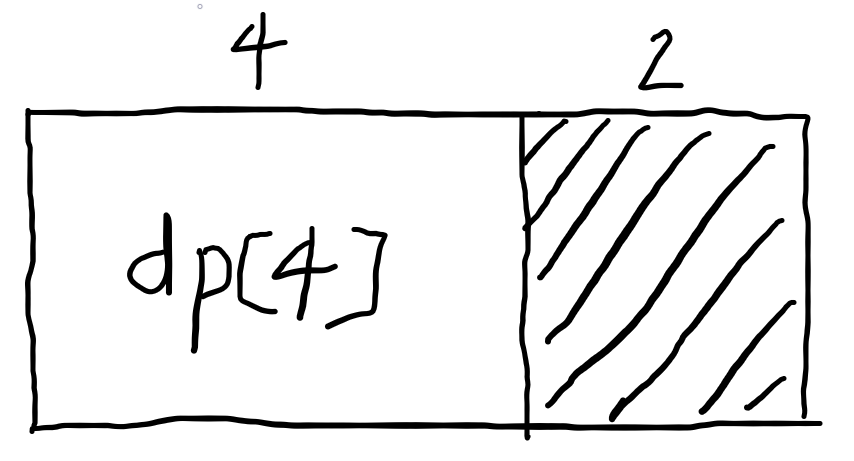 4 2
dp[4]